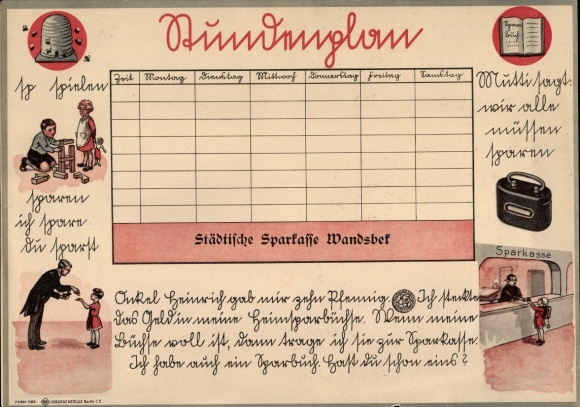 Stundenplan
Spar
buch
sp spielen
sparen
ich spare
du sparst
Zeit Montag Dienstag Mittwoch Donnerstag Freitag Samstag
Städtische Sparkasse Wandsbek
Mutti sagt:
wir alle
müssen
sparen
Sparkasse
Onkel Heinrich gab mir zehn Pfennig. Ich steckte
das Geld in meine Heimsparbüchse. Wenn meine
Büchse voll ist, dann trage ich sie zur Sparkasse.
Ich habe auch ein Sparbuch. Hast du schon eins?
FORM 1188 VORDRUCKSTELLE Berlin C 2